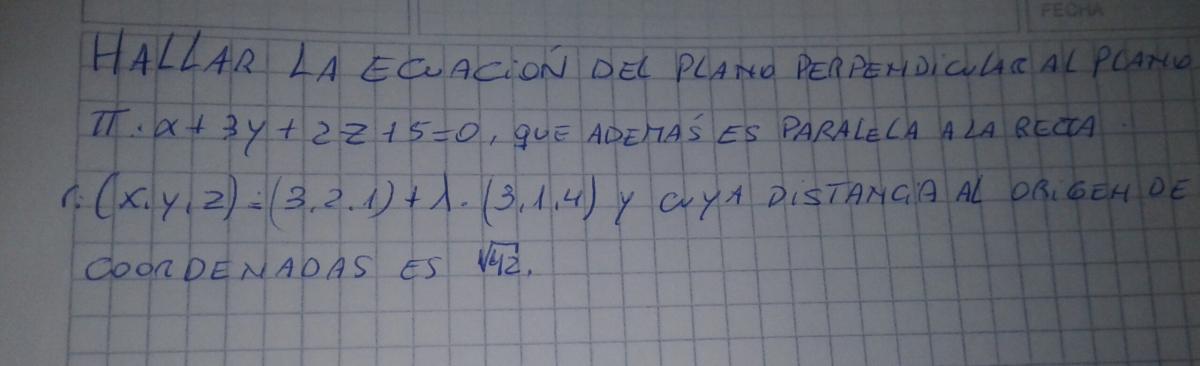 FECHA
HALLAR LA ECUACIÓN DEL PLANO PERPENDICULAR AL PLANO
π. x+3y+2z+5=0, que ADEMÁS ES PARALELA A LA RECTA.
r: (x,y,z)=(3,2,1)+λ.(3,1,4) y cuyA DISTANCIA AL ORIGEN DE
COORDENADAS ES √42.